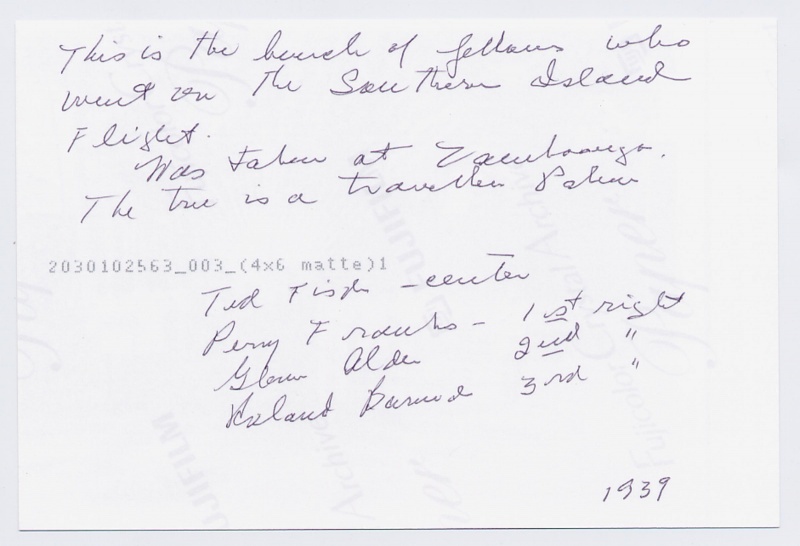 This is the bunch of fellows who
went on the Southern Island
Flight.
Was taken at Zamboanga.
The tree is a travellers Palm
2030102563_003_(4x6 matte)1
Ted Fisch - center
Perry Franks - 1st right
Glenn Alder 2nd "
Roland Barnwd 3rd "
1939
FUJIFILM
Fujicolor Crystal Archive